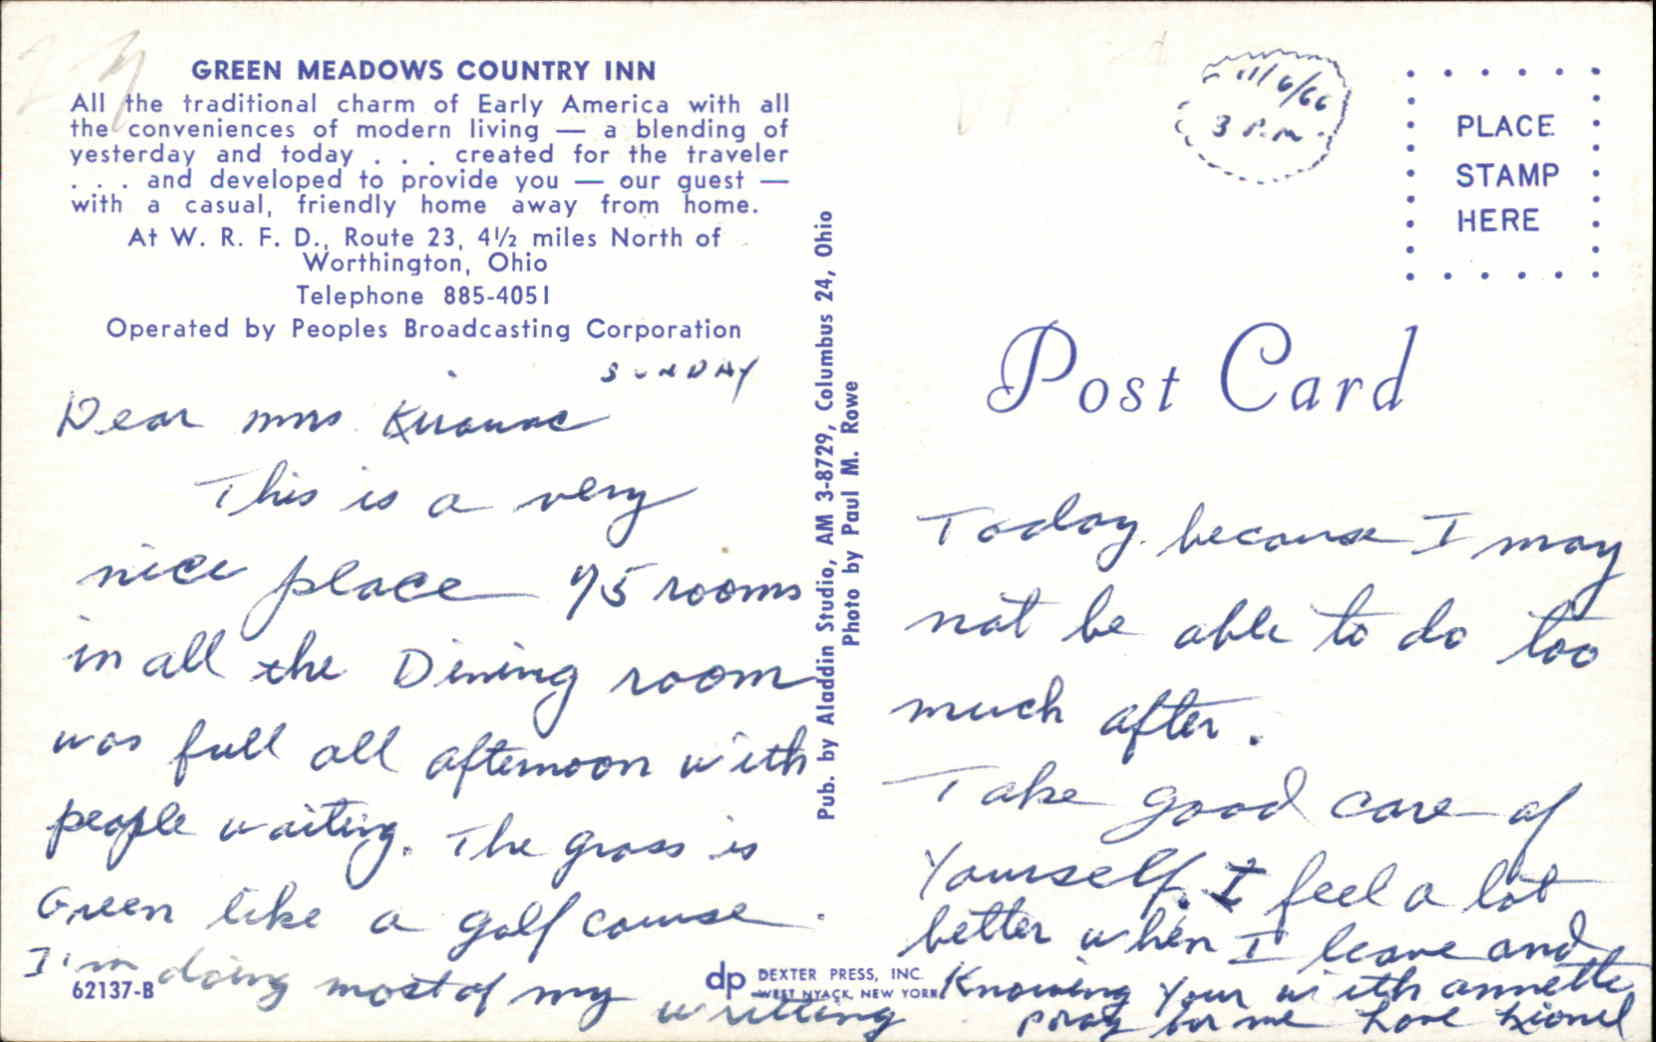 GREEN MEADOWS COUNTRY INN
All the traditional charm of Early America with all
the conveniences of modern living — a blending of
yesterday and today . . . created for the traveler
. . . and developed to provide you — our guest —
with a casual, friendly home away from home.
At W. R. F. D., Route 23, 4½ miles North of
Worthington, Ohio
Telephone 885-4051
Operated by Peoples Broadcasting Corporation
SUNDAY
Dear mrs
This is a very
nice place 75 rooms
in all the Dining room
was full all afternoon with
people waiting. The grass is
Green like a golf course.
I'm doing most of my
writting
62137-B
dp DEXTER PRESS, INC.
WEST NYACK, NEW YORK
Pub. by Aladdin Studio, AM 3-8729, Columbus 24, Ohio
Photo by Paul M. Rowe
11/6/66
3 P.M.
PLACE
STAMP
HERE
Post Card
Today because I may
not be able to do too
much after.
Take good care of
Yourself. I feel a lot
better when I leave and
Knowing Your with annette
pray for me Love Lionel